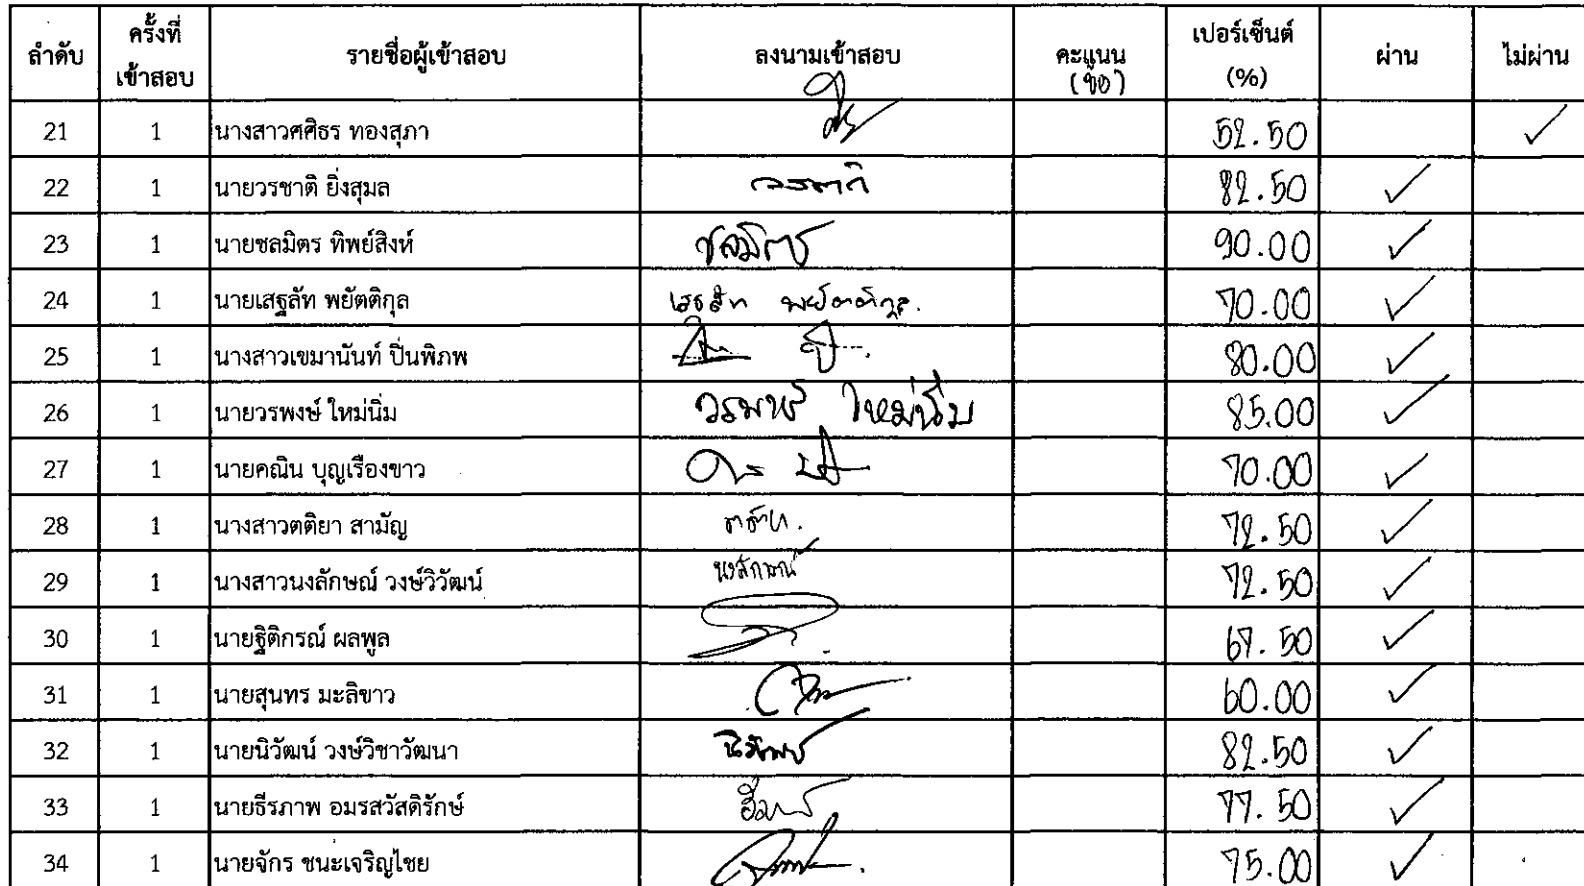 ลำดับ ครั้งที่เข้าสอบ รายชื่อผู้เข้าสอบ ลงนามเข้าสอบ คะแนน (ข้อ) เปอร์เซ็นต์ (%) ผ่าน ไม่ผ่าน
21 1 นางสาวศศิธร ทองสุภา 52.50 ✓
22 1 นายวรชาติ ยิ่งสุมล วรชาติ 82.50 ✓
23 1 นายชลมิตร ทิพย์สิงห์ ชลมิตร 90.00 ✓
24 1 นายเสฐลัท พยัตติกุล เสฐลัท พยัตติกุล 70.00 ✓
25 1 นางสาวเขมานันท์ ปิ่นพิภพ 80.00 ✓
26 1 นายวรพงษ์ ใหม่นิ่ม วรพงษ์ ใหม่นิ่ม 85.00 ✓
27 1 นายคณิน บุญเรืองขาว 70.00 ✓
28 1 นางสาวตติยา สามัญ 72.50 ✓
29 1 นางสาวนงลักษณ์ วงษ์วิวัฒน์ นงลักษณ์ 72.50 ✓
30 1 นายฐิติกรณ์ ผลพูล 67.50 ✓
31 1 นายสุนทร มะลิขาว 60.00 ✓
32 1 นายนิวัฒน์ วงษ์วิชาวัฒนา นิวัฒน์ 82.50 ✓
33 1 นายธีรภาพ อมรสวัสดิรักษ์ 77.50 ✓
34 1 นายจักร ชนะเจริญไชย 75.00 ✓